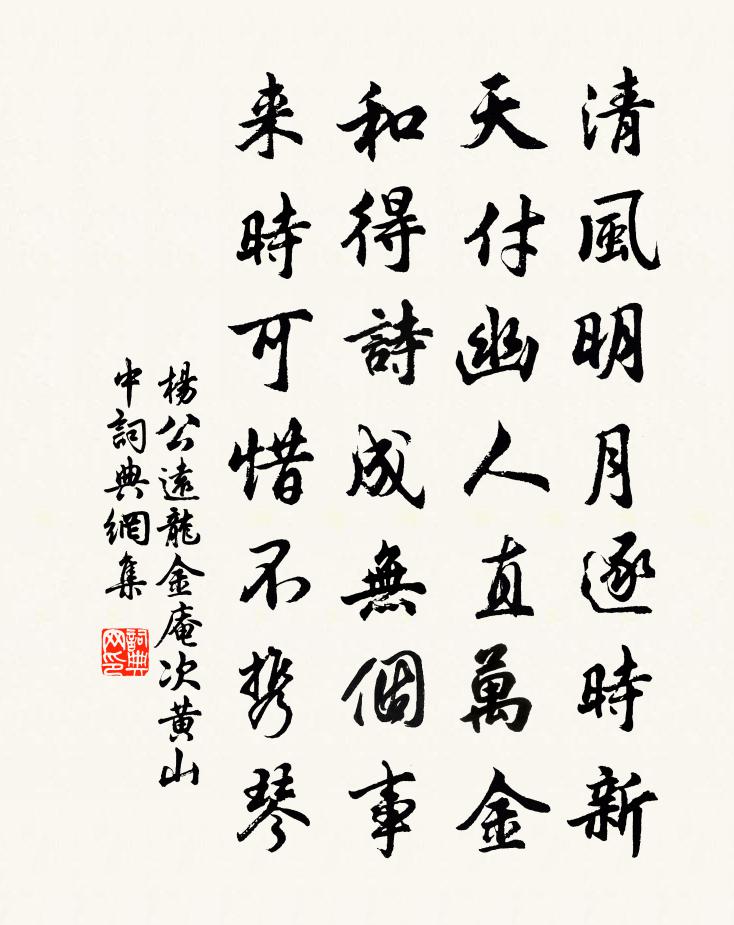 清風明月逐時新
天付幽人直萬金
和得詩成無個事
来時可惜不携琴
楊公遠龍金庵次黄山
中詞典網集
詞典网印